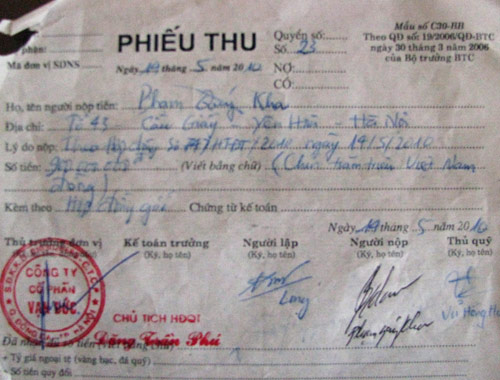 Mẫu số C30-BB
PHIẾU THU
Quyển số:
Theo QĐ số: 19/2006/QĐ-BTC
phận:
Số 23
ngày 30 tháng 3 năm 2006
của Bộ trưởng BTC
Mã đơn vị SDNS
Ngày 19 tháng 5 năm 2010
NỢ:
CÓ:
Họ, tên người nộp tiền: Phạm Quang Kha
Địa chỉ: Tổ 43 Cầu Giấy - Yên Hòa - Hà Nội
Lý do nộp: Theo Hợp đồng số /HĐĐT/2010 ngày 19/5/2010
Số tiền: (Viết bằng chữ) (Chín trăm triệu Việt Nam
đồng)
Kèm theo Chứng từ kế toán
Ngày 19 tháng 5 năm 2010
Thủ trưởng đơn vị Kế toán trưởng Người lập Người nộp Thủ quỹ
(Ký, họ tên) (Ký, họ tên) (Ký, họ tên) (Ký, họ tên)
CÔNG TY
CỔ PHẦN
Long
Vũ Hồng
CHỦ TỊCH HĐQT
Đặng Trần Phú
+ Tỷ giá ngoại tệ (vàng bạc, đá quý)
+ Số tiền quy đổi